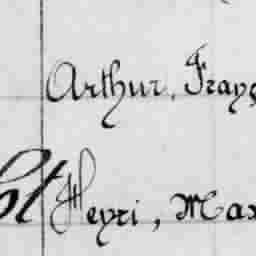 Arthur, Franç
Henri, Max